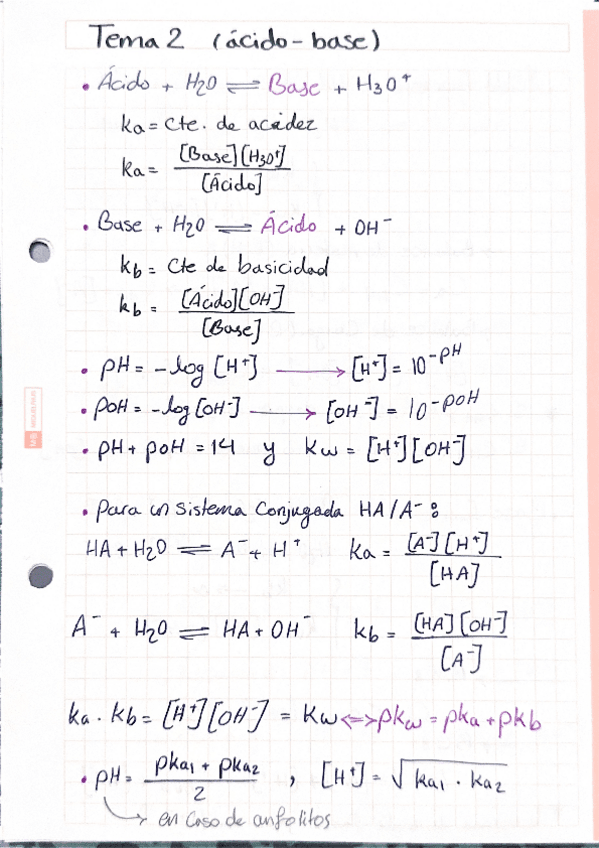 Tema 2 (ácido-base)
• Ácido + H2O ⇌ Base + H3O⁺
ka = Cte. de acidez
ka = [Base][H3O⁺] / [Ácido]
• Base + H2O ⇌ Ácido + OH⁻
kb = Cte de basicidad
kb = [Ácido][OH⁻] / [Base]
• pH = -log [H⁺] → [H⁺] = 10^-pH
• pOH = -log [OH⁻] → [OH⁻] = 10^-pOH
• pH + pOH = 14 y kw = [H⁺][OH⁻]
• Para un sistema Conjugada HA/A⁻ :
HA + H2O ⇌ A⁻ + H⁺ ka = [A⁻][H⁺] / [HA]
A⁻ + H2O ⇌ HA + OH⁻ kb = [HA][OH⁻] / [A⁻]
ka · kb = [H⁺][OH⁻] = kw <=> pkw = pka + pkb
• pH = pka1 + pka2 / 2 , [H⁺] = √ka1 · ka2
en caso de anfolitos
MIQUELRIUS